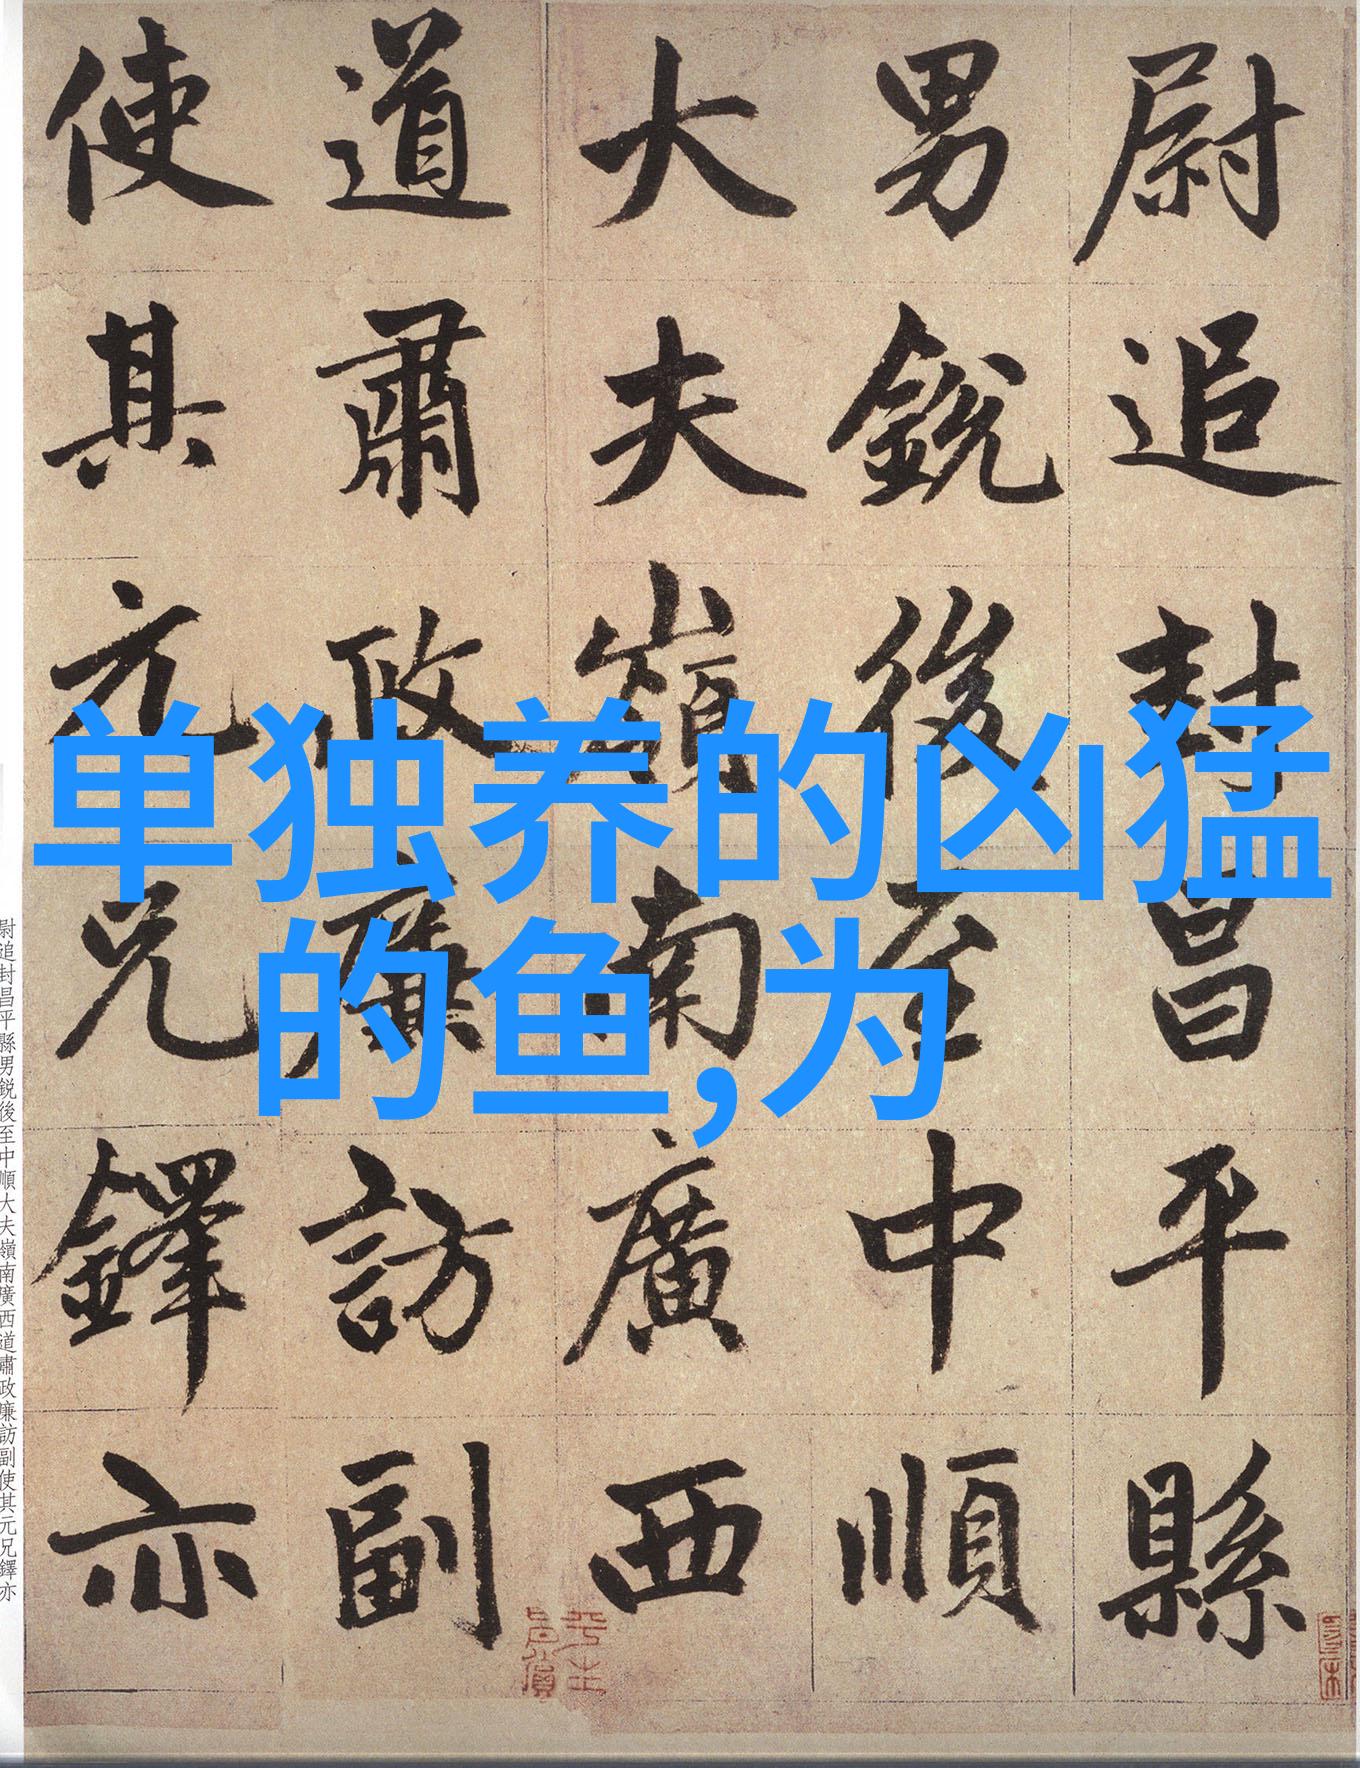 单独养的凶猛
的鱼,为
尉追封昌平縣
男銳後至中順
大夫嶺南廣西
道肅政廉訪副
使其元兄鐸亦
尉追封昌平縣男鋭後至中順大夫嶺南廣西道肅政廉訪副使其元兄鐸亦